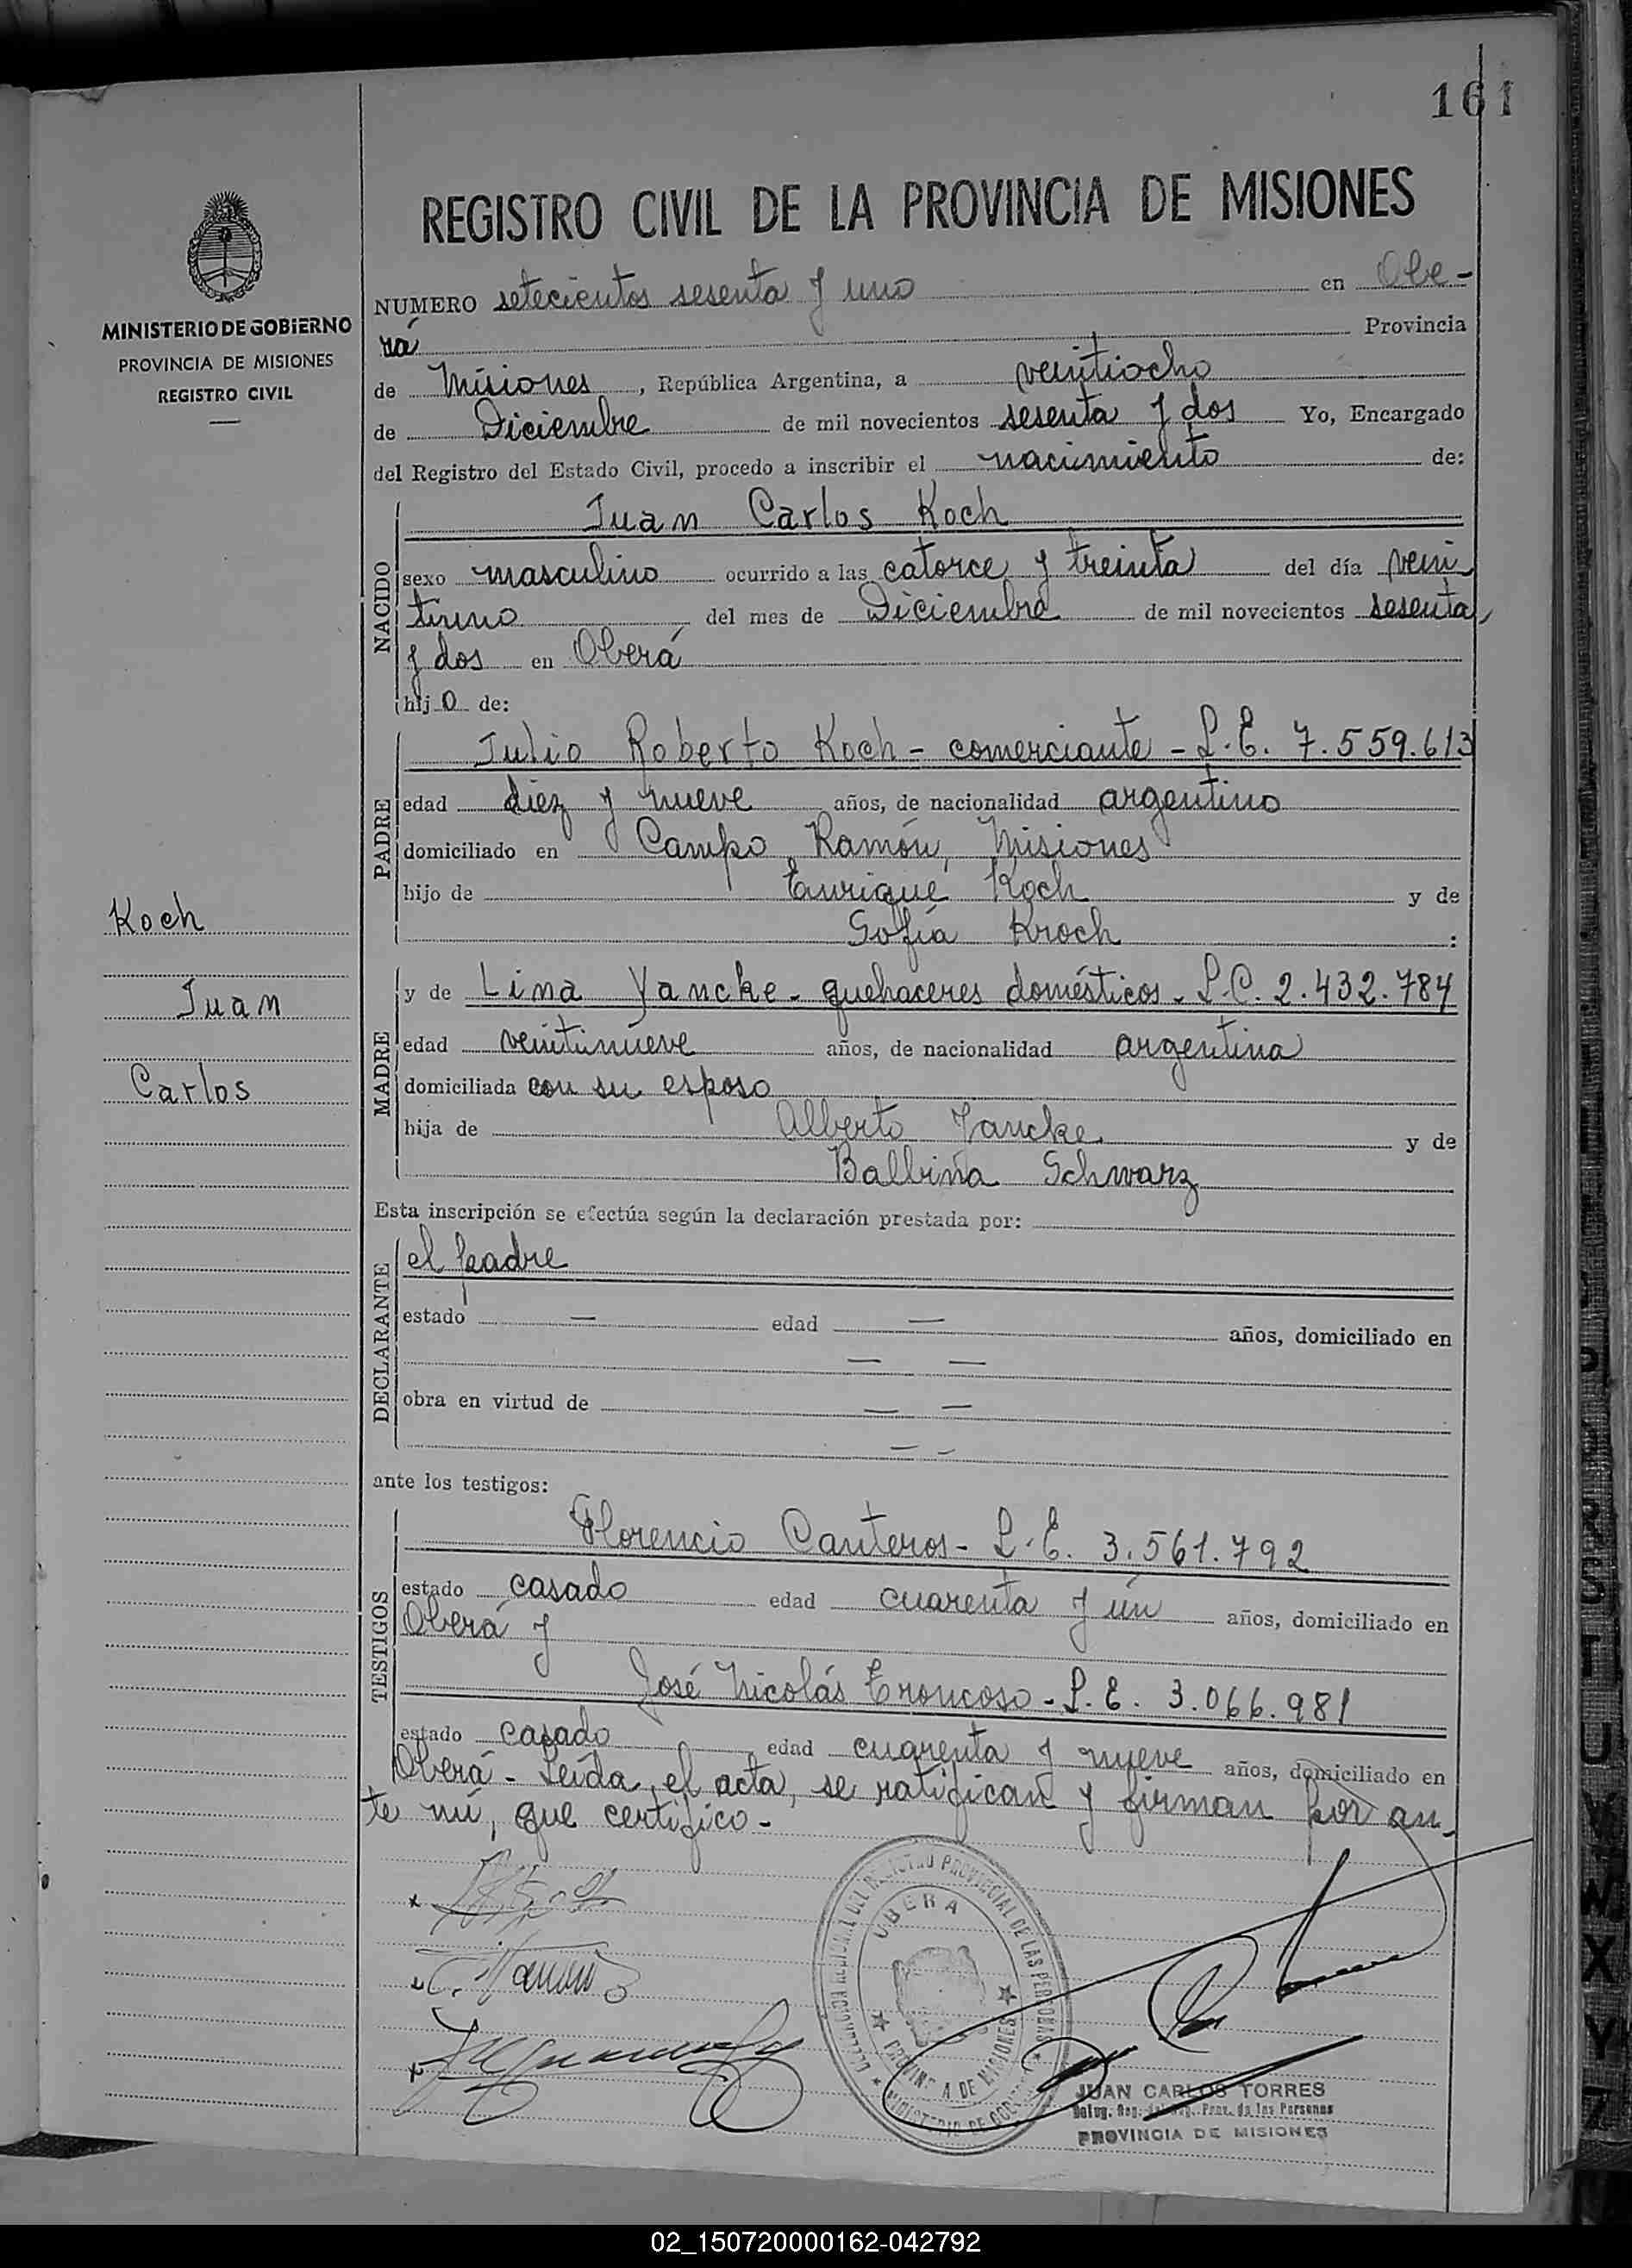 161
REGISTRO CIVIL DE LA PROVINCIA DE MISIONES
MINISTERIO DE GOBIERNO
PROVINCIA DE MISIONES
REGISTRO CIVIL
NUMERO setecientos sesenta y uno en Obe-
rá Provincia
de Misiones, República Argentina, a veintiocho
de Diciembre de mil novecientos sesenta y dos Yo, Encargado
del Registro del Estado Civil, procedo a inscribir el nacimiento de:
NACIDO
Juan Carlos Koch
sexo masculino ocurrido a las catorce y treinta del día vein
tiuno del mes de Diciembre de mil novecientos sesenta
y dos en Oberá
hijo de:
PADRE
Julio Roberto Koch - comerciante - L.E. 7.559.613
edad diez y nueve años, de nacionalidad argentino
domiciliado en Campo Ramón, Misiones
hijo de Enrique Koch y de
Sofía Kroch :
Koch
Juan
Carlos
MADRE
y de Lima Yancke - quehaceres domésticos - L.C. 2.432.784
edad veintinueve años, de nacionalidad argentina
domiciliada con su esposo
hija de Alberto Yancke y de
Balbina Schwarz
Esta inscripción se efectúa según la declaración prestada por:
DECLARANTE
el padre
estado — edad — años, domiciliado en
— —
obra en virtud de — —
— -
ante los testigos:
TESTIGOS
Florencio Canteros - L.E. 3.561.792
estado casado edad cuarenta y un años, domiciliado en
Oberá y
José Nicolás Troncoso - L.E. 3.066.981
estado casado edad cuarenta y nueve años, domiciliado en
Oberá - Leída el acta, se ratifican y firman por an-
te mí, que certifico -
OBERA
PROVINCIA DE MISIONES
JUAN CARLOS TORRES
PROVINCIA DE MISIONES
02_150720000162-042792